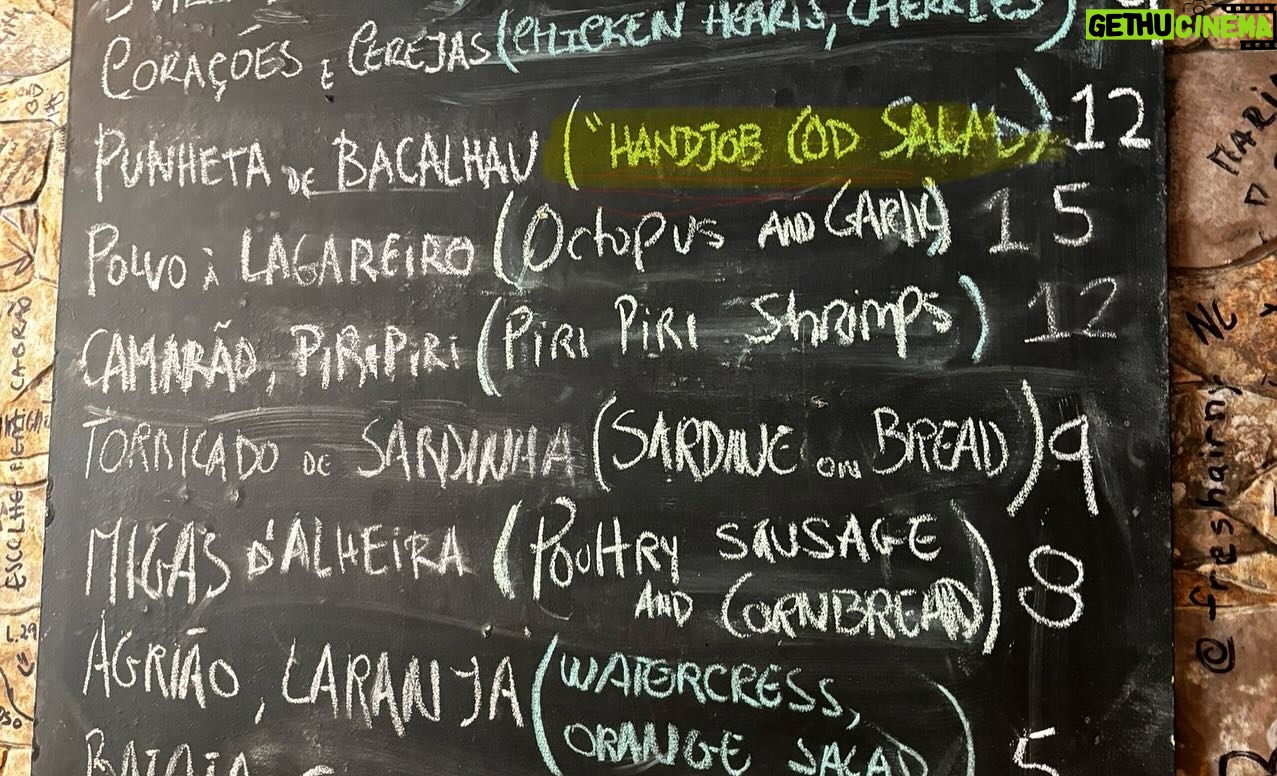 GETHU CINEMA
CORAÇÕES E CEREJAS (CHICKEN HEARTS, CHERRIES)
PUNHETA DE BACALHAU ("HANDJOB COD SALAD) 12
POLVO À LAGAREIRO (Octopus AND GARLIC) 15
CAMARÃO, PIRIPIRI (PIRI PIRI Shrimps) 12
TORRICADO DE SARDINHA (SARDINE ON BREAD) 9
MIGAS D'ALHEIRA (POULTRY SAUSAGE
AND CORNBREAD) 8
AGRIÃO, LARANJA (WATERCRESS,
ORANGE SALAD 5
MARIA
NC
@freshairny
ESCOLHE
CABRÃO